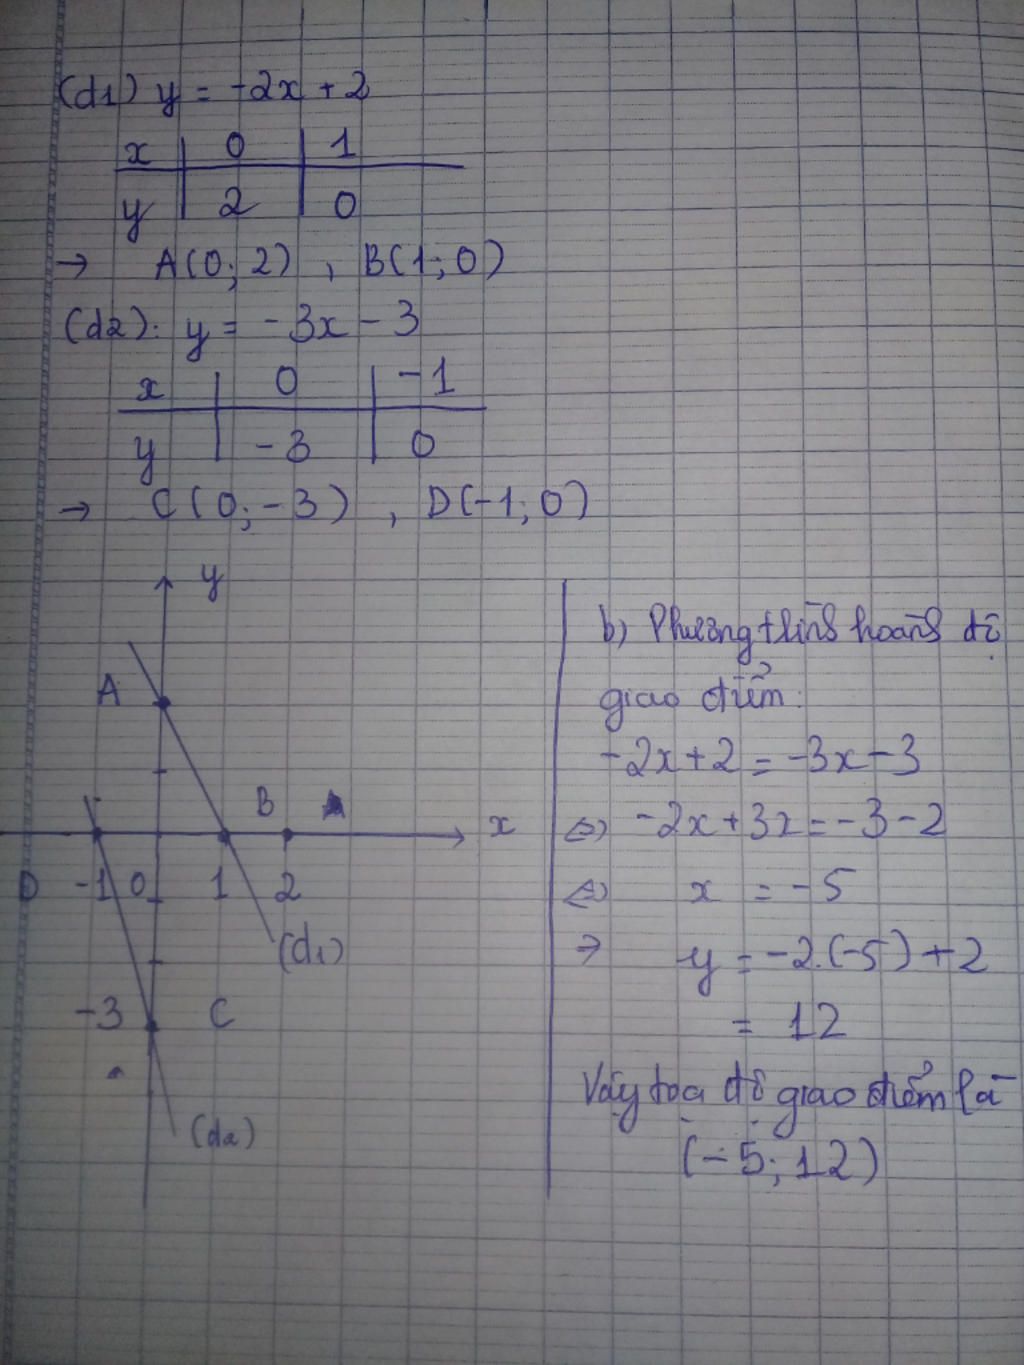 (d1) y = -2x + 2
x | 0 | 1
y | 2 | 0
→ A(0; 2) , B(1; 0)
(d2): y = -3x - 3
x | 0 | -1
y | -3 | 0
→ C(0; -3) , D(-1; 0)
y
A
B
x
D -1 0 1 2
(d1)
-3 C
(d2)
b) Phương trình hoành độ
giao điểm:
-2x + 2 = -3x - 3
⇔ -2x + 3x = -3 - 2
⇔ x = -5
⇒ y = -2.(-5) + 2
= 12
Vậy tọa độ giao điểm là
(-5; 12)